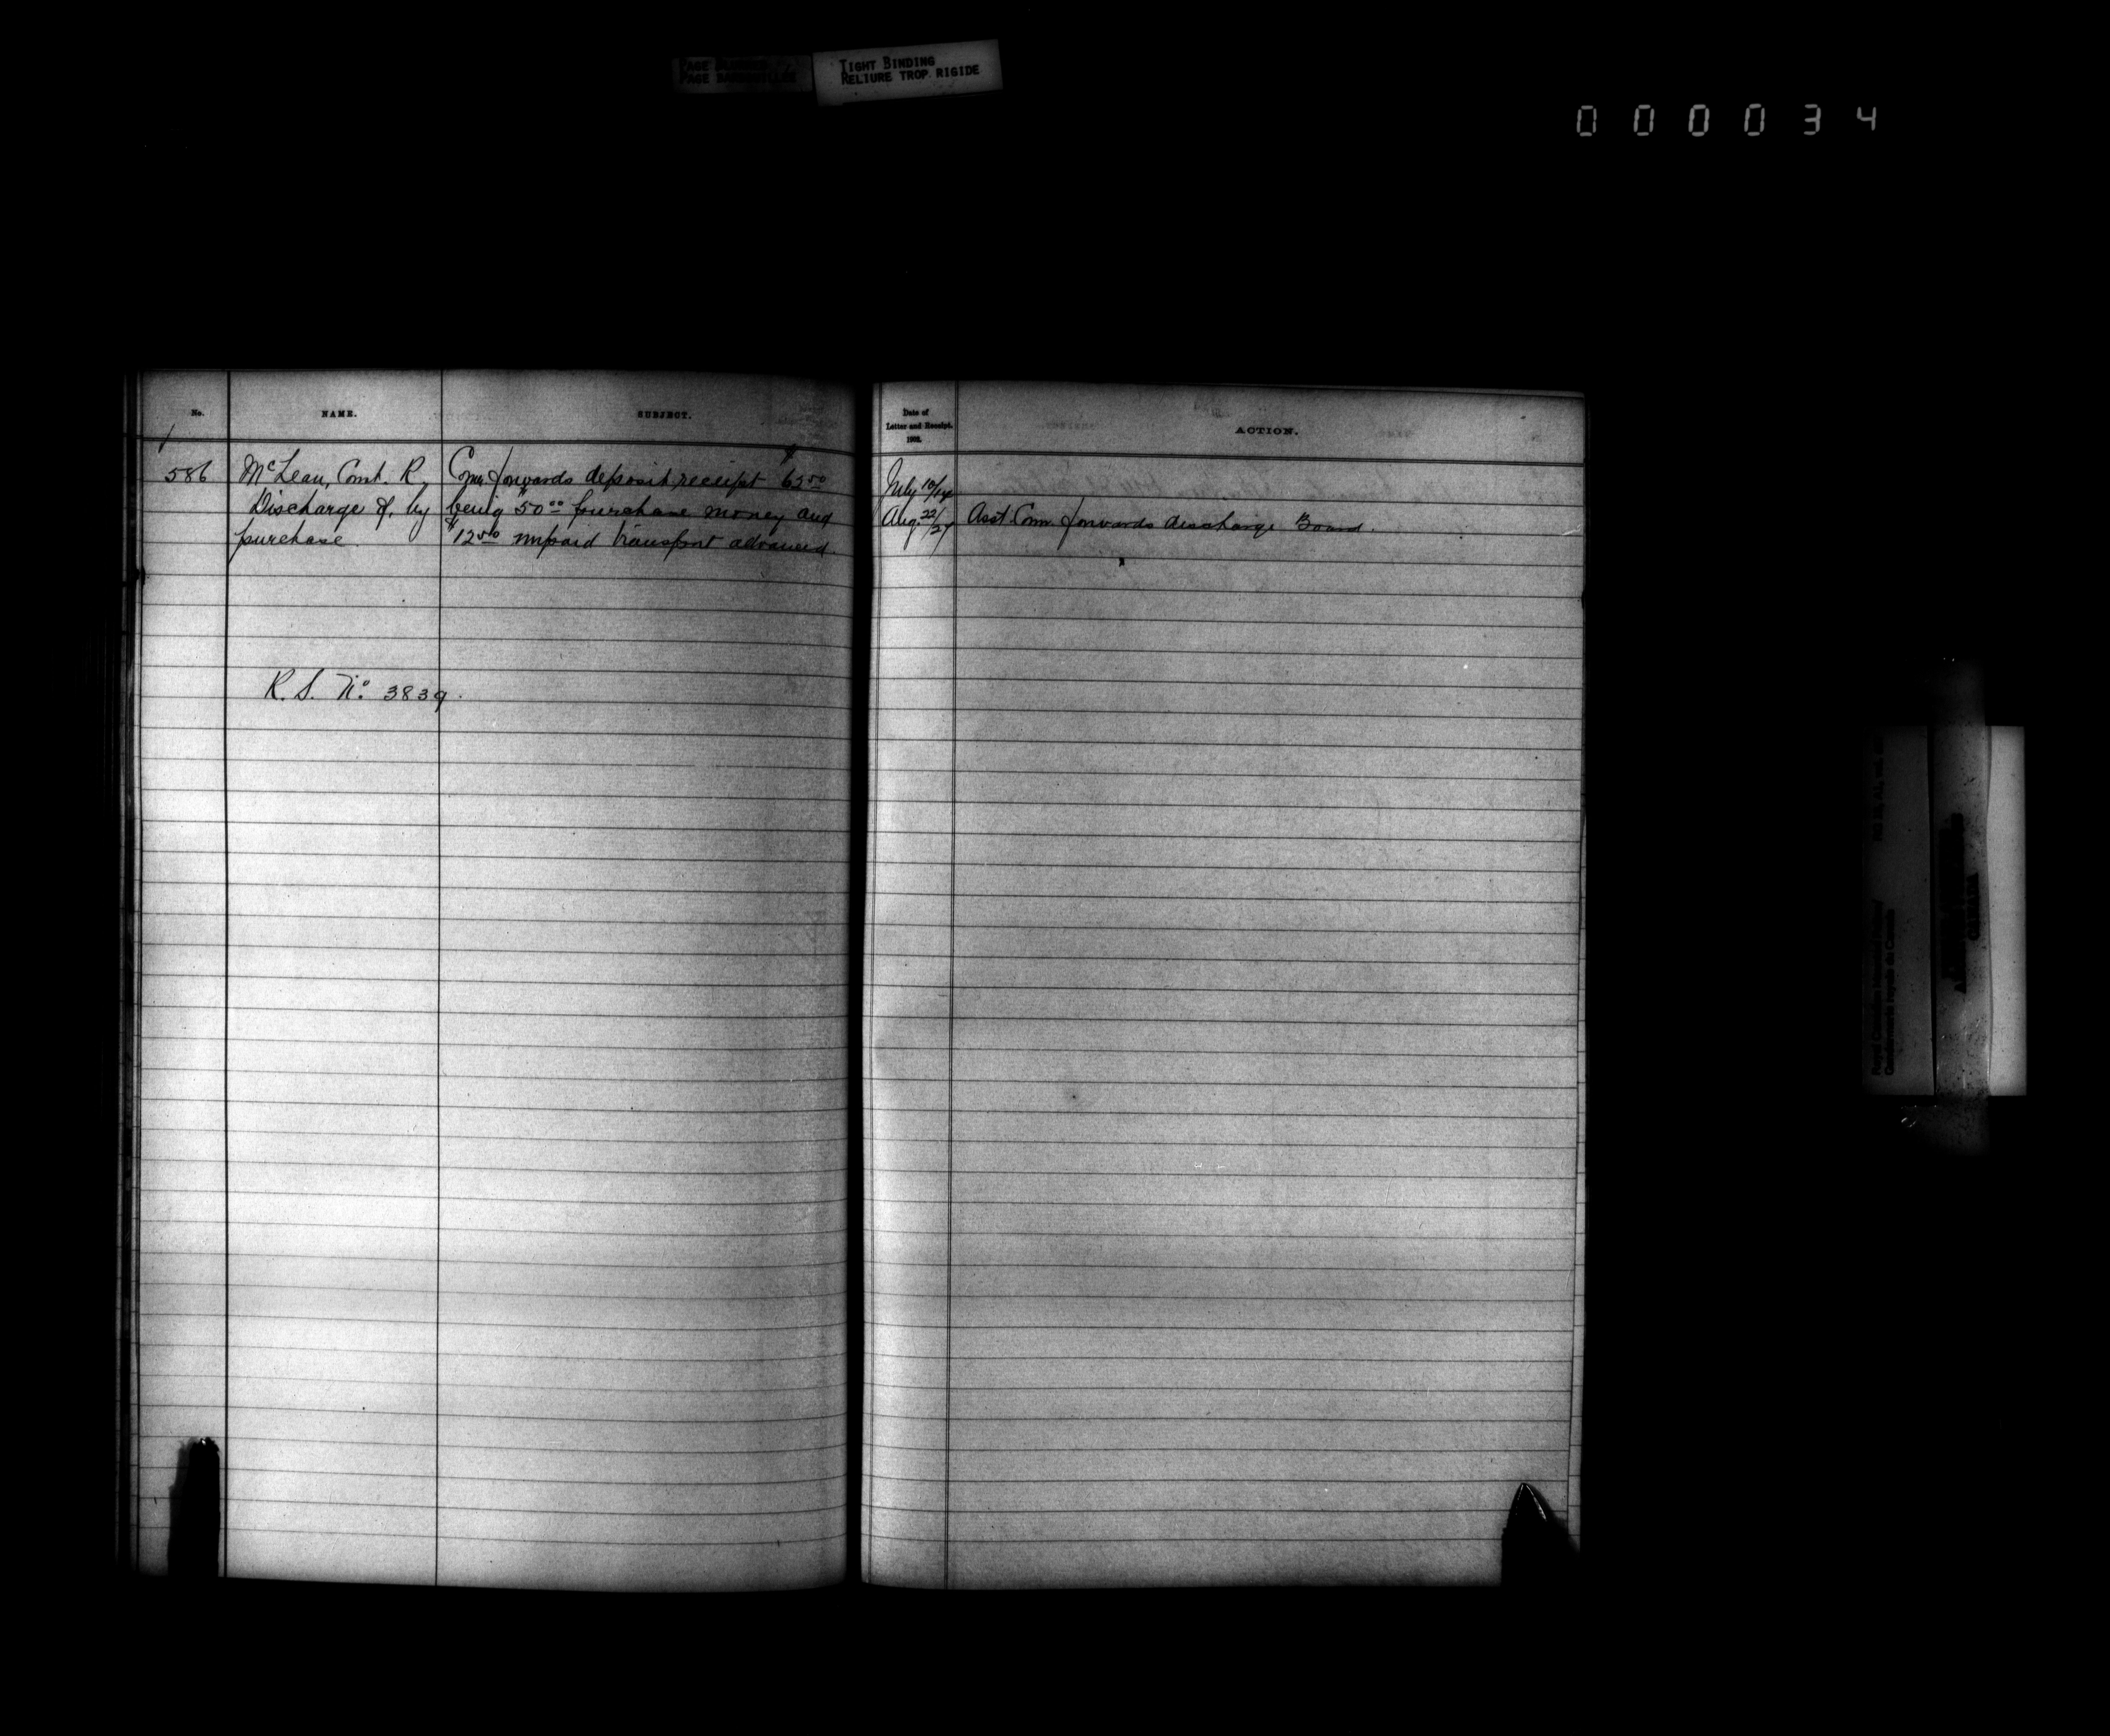 TIGHT BINDING
RELIURE TROP RIGIDE
000034
No.
NAME.
SUBJECT.
Date of
Letter and Receipt.
1902.
ACTION.
586
McLean, Const. R.
Discharge of, by
purchase.
Comr. forwards deposit receipt 62 50
being $50 00 purchase money and
$12 50 unpaid transport advanced.
July 10/14
Aug. 22/27
Asst. Com. forwards discharge Board.
R. S. No. 3839.